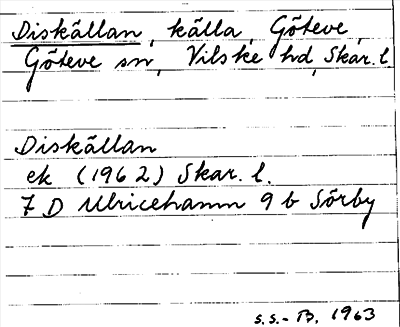 Diskällan, källa, Göteve,
Göteve sn, Vilske hd, Skar. l
Diskällan
ek (1962) Skar. l.
7 D Ulricehamn 9 b Sörby
S.S.-B. 1963